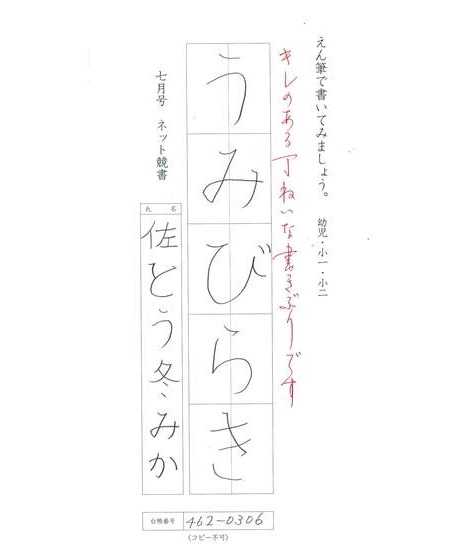 えん筆で書いてみましょう。 幼児・小一・小二
キレのある丁ねいな書きぶりです
うみびらき
七月号 ネット競書
氏名
佐とう冬みか
台帳番号 462-0306
〈コピー不可〉